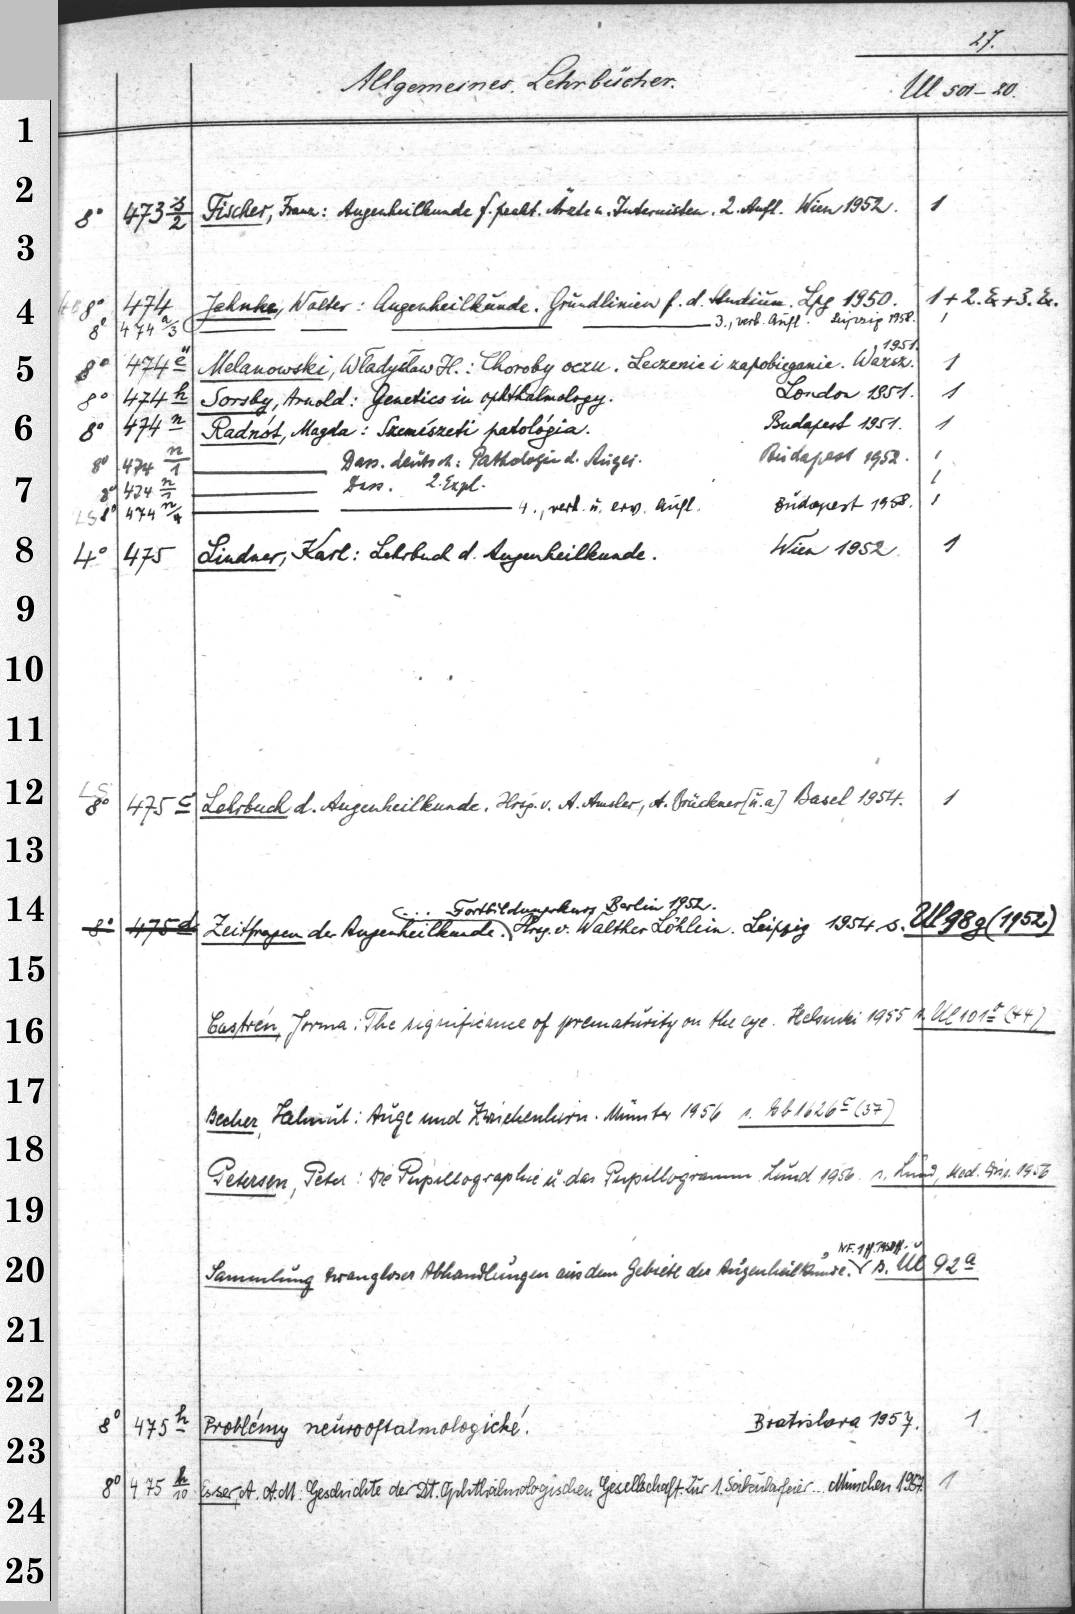 27.
Allgemeines. Lehrbücher. Ul 501-20.
1
2
8° 473 s/2 Fischer, Franz: Augenheilkunde f. prakt. Ärzte u. Internisten. 2. Aufl. Wien 1952. 1
3
4 8° 474 Jahnke, Walter: Augenheilkunde. Grundlinien f. d. Studium. Lpg 1950. 1 + 2. Ex + 3. Ex.
8° 474 a/3 3., verb. Aufl. Leipzig 1958. 1
5 8° 474 e Melanowski, Władysław H.: Choroby oczu. Leczenie i zapobieganie. Warsz. 1951. 1
8° 474 h Sorsby, Arnold: Genetics in ophthalmology. London 1951. 1
6 8° 474 n Radnót, Magda: Szemészeti patológia. Budapest 1951. 1
8° 474 n/1 Dass. deutsch: Pathologie d. Auges. Budapest 1952. 1
7 8° 474 n/1 Dass. 2. Expl. 1
LS 8° 474 n/4 4., verb. u. erw. Aufl. Budapest 1958. 1
8 4° 475 Lindner, Karl: Lehrbuch d. Augenheilkunde. Wien 1952. 1
9
10
11
12 LS 8° 475 c Lehrbuch d. Augenheilkunde. Hrsg. v. A. Amsler, A. Brückner [u.a] Basel 1954. 1
13
(... Fortbildungskurs Berlin 1952.
14 8° 475 d Zeitfragen der Augenheilkunde.) Hrsg. v. Walther Löhlein. Leipzig 1954 s. Ul 98 g (1952)
15
16 Castrén, Jorma: The significance of prematurity on the eye. Helsinki 1955 s. Ul 101 (44)
17
Becher, Helmut: Auge und Zwischenhirn. Münster 1956 s. 1626 c (37)
18
Petersen, Peter: Die Pupillographie u. das Pupillogramm Lund 1956. s. Lund, Med. Diss. 1956
19
NF. 1 ff. 1958 ff.
20 Sammlung zwangloser Abhandlungen aus dem Gebiete der Augenheilkunde. s. Ul 92 a
21
22
8° 475 h Problémy neurooftalmologické. Bratislava 1957. 1
23
8° 475 h/10 Esser, A. A.M. Geschichte der Dt. Ophthalmologischen Gesellschaft. Zur 1. Säkularfeier... München 1957. 1
24
25